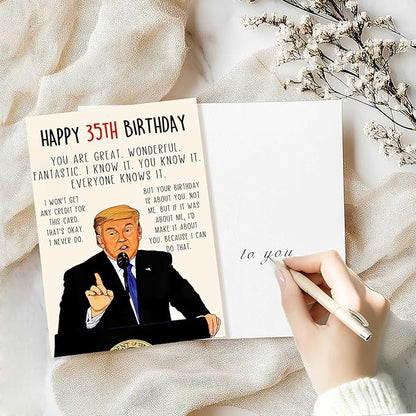 HAPPY 35TH BIRTHDAY
YOU ARE GREAT. WONDERFUL.
FANTASTIC. I KNOW IT. YOU KNOW IT.
EVERYONE KNOWS IT.
I WON'T GET
ANY CREDIT FOR
THIS CARD.
THAT'S OKAY.
I NEVER DO.
BUT YOUR BIRTHDAY
IS ABOUT YOU. NOT
ME. BUT IF IT WAS
ABOUT ME, I'D
MAKE IT ABOUT
YOU. BECAUSE I CAN
DO THAT.
to you